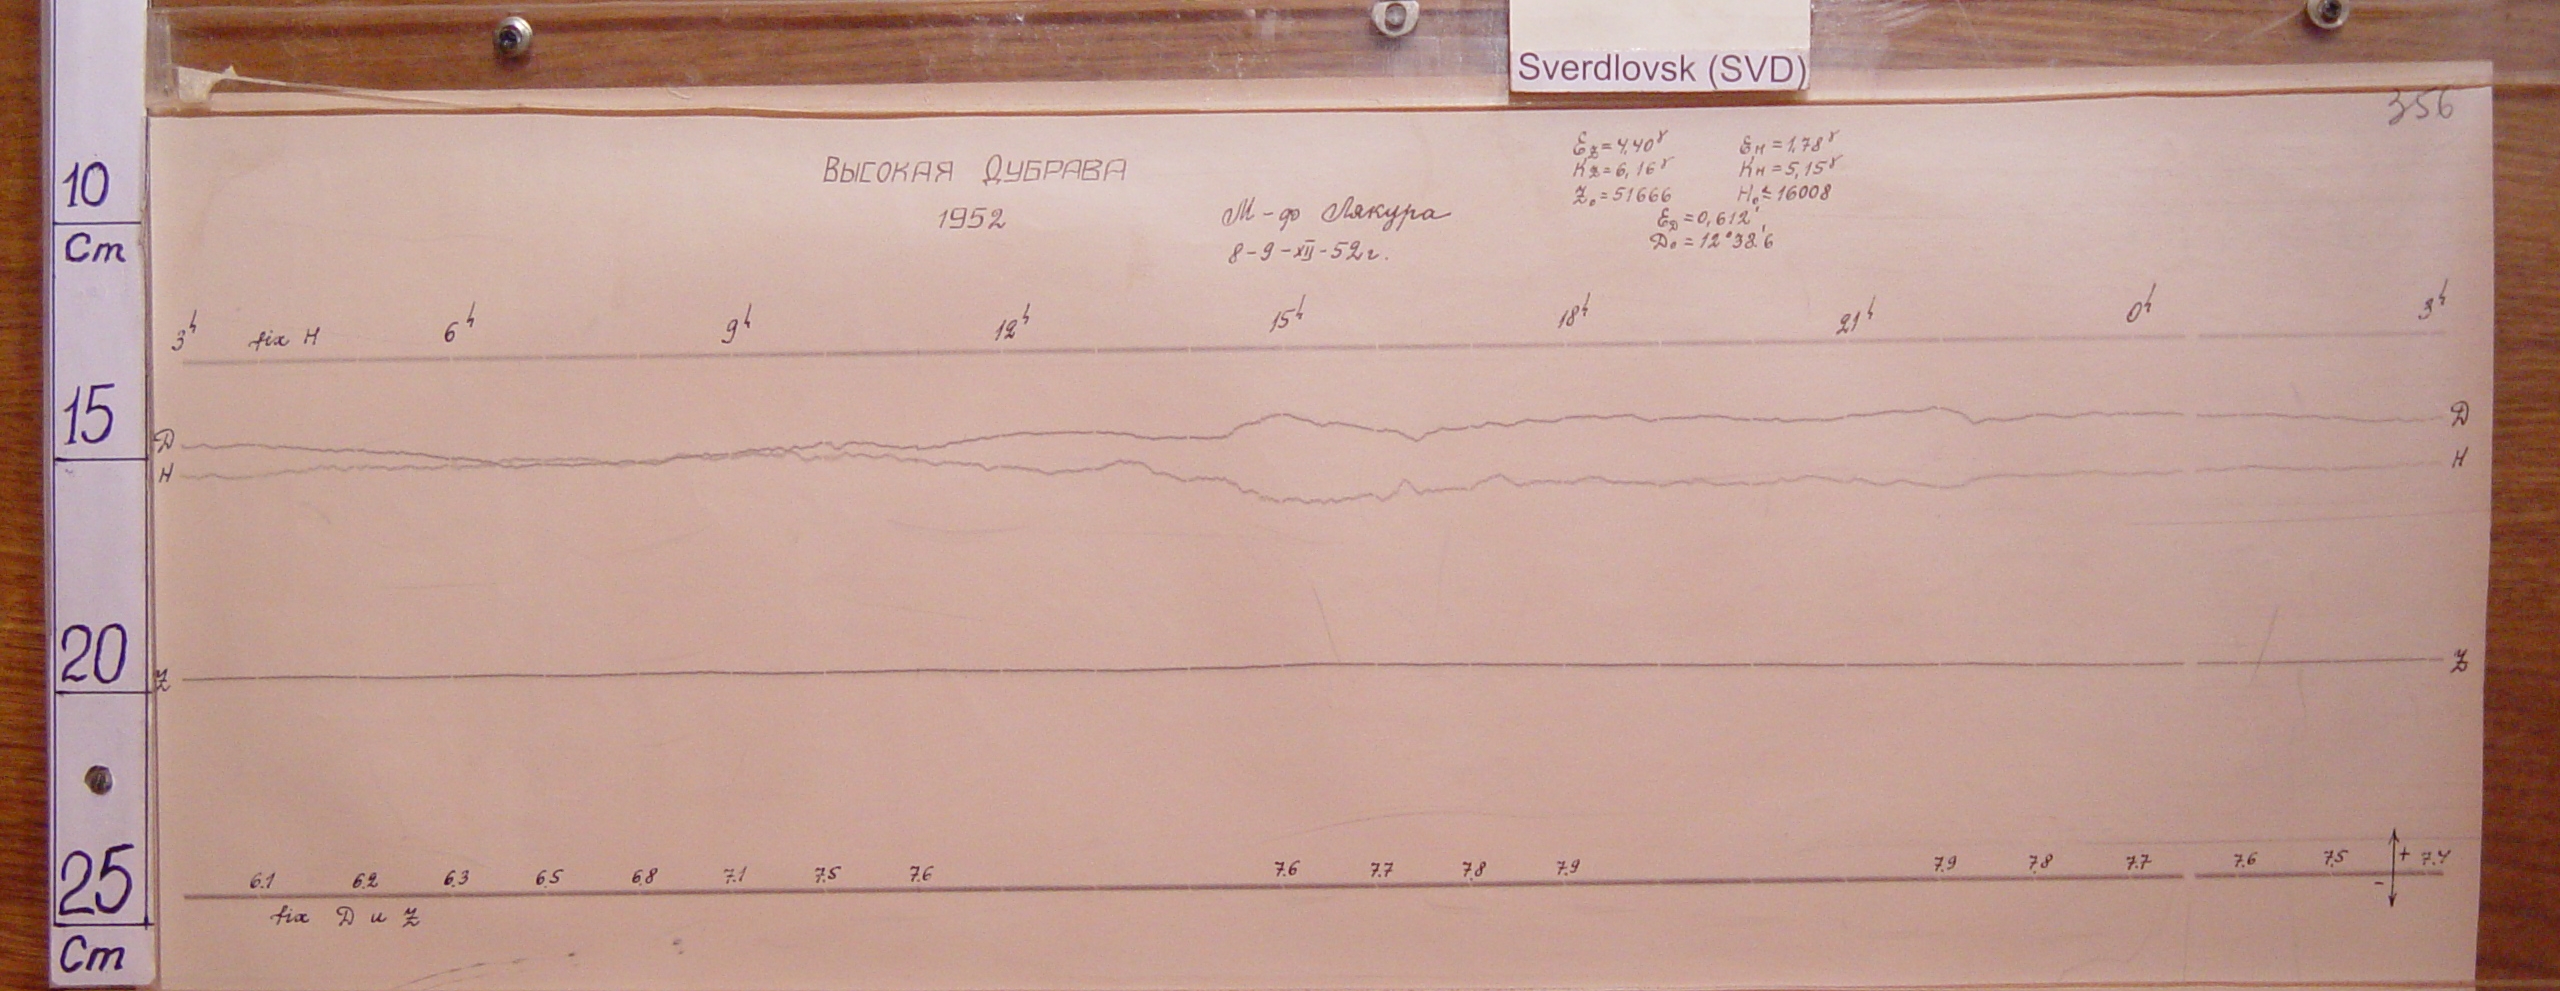 Sverdlovsk (SVD)
356
10
Cm
15
20
25
Cm
ВЫСОКАЯ ДУБРАВА
1952
М-ф Лякура
8-9-XII-52г.
Ez=4,40γ Eн=1,78γ
Kz=6,16γ Kн=5,15γ
Z₀=51666 H₀=16008
E_D=0,612'
D₀=12°38'.6
3h fix H 6h 9h 12h 15h 18h 21h 0h 3h
D D
H H
Z Z
6.1 6.2 6.3 6.5 6.8 7.1 7.5 7.6 7.6 7.7 7.8 7.9 7.9 7.8 7.7 7.6 7.5 + 7.4
-
fix D и Z